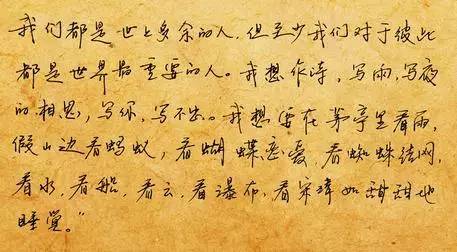 我们都是世上多余的人，但至少我们对于彼此
都是世界最重要的人。我想作诗，写雨，写夜
的相思，写你，写不出。我想要在茅亭里看雨，
假山边看蚂蚁，看蝴蝶恋爱，看蜘蛛结网，
看水，看船，看云，看瀑布，看宋清如甜甜地
睡觉。”